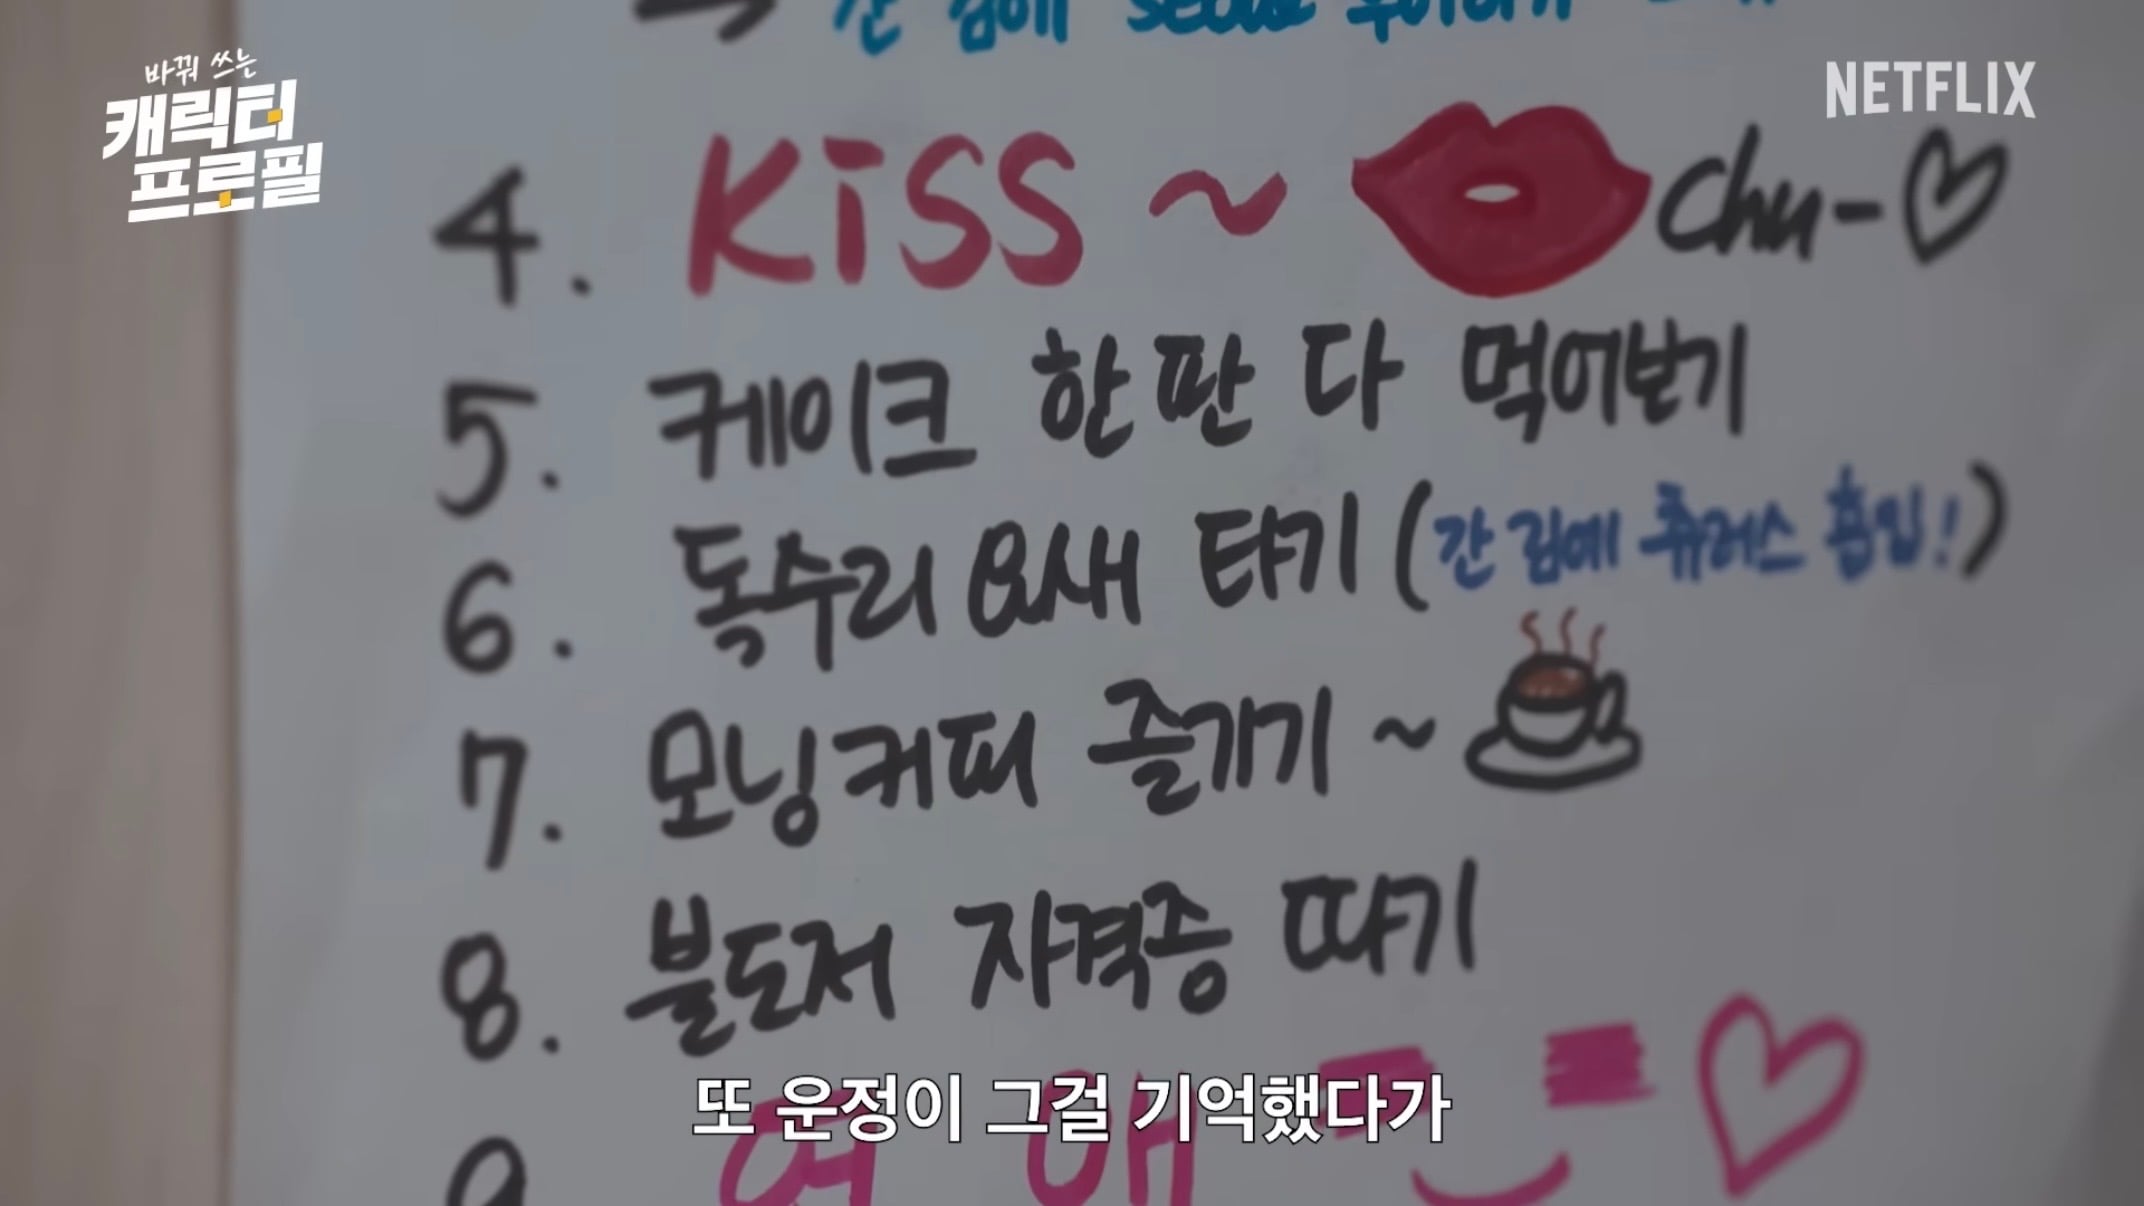 간 김에 seoul
바꿔 쓰는
캐릭터
프로필
NETFLIX
4. KiSS ~ Chu-♡
5. 케이크 한 판 다 먹어보기
6. 독수리 요새 타기 (간 김에 츄러스 흡입!)
7. 모닝커피 즐기기 ~
8. 불도저 자격증 따기
또 운정이 그걸 기억했다가
9. 연애